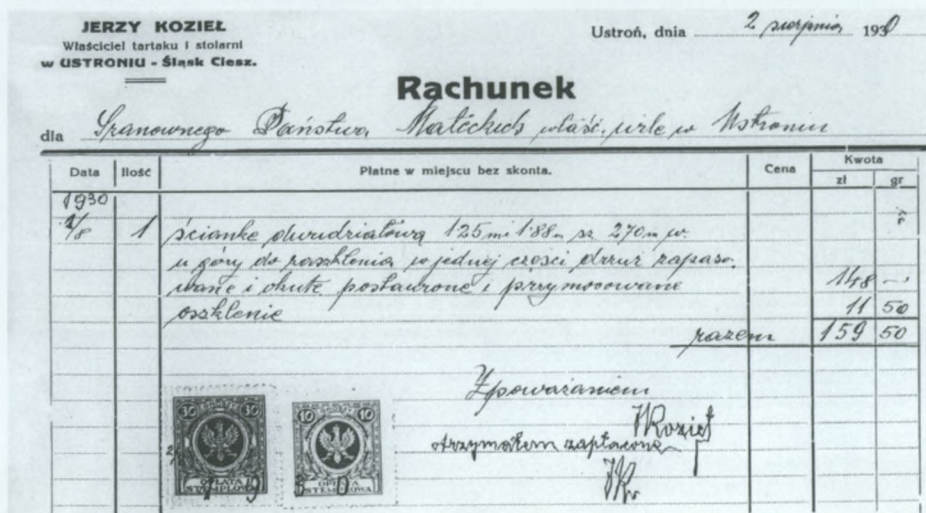 JERZY KOZIEŁ
Właściciel tartaku i stolarni
w USTRONIU - Śląsk Ciesz.
Ustroń, dnia 2 sierpnia 1930
Rachunek
dla Szanownego Państwa Małeckich właść. w Ustroniu
Data Ilość Płatne w miejscu bez skonta. Cena Kwota
zł gr
1930
2/8 1 ściankę dwudziałową 1.25 m i 1.88 m sz 2.70 m w.
u góry do zaszklenia w jednej części drzwi zapaso-
wane i okute postawione i przymocowane 148 -
oszklenie 11 50
razem 159 50
Z poważaniem
JKozieł
otrzymałem zapłacone
JK
30 30
OPŁATA
STEMPLOWA
10 10
OPŁATA
STEMPLOWA